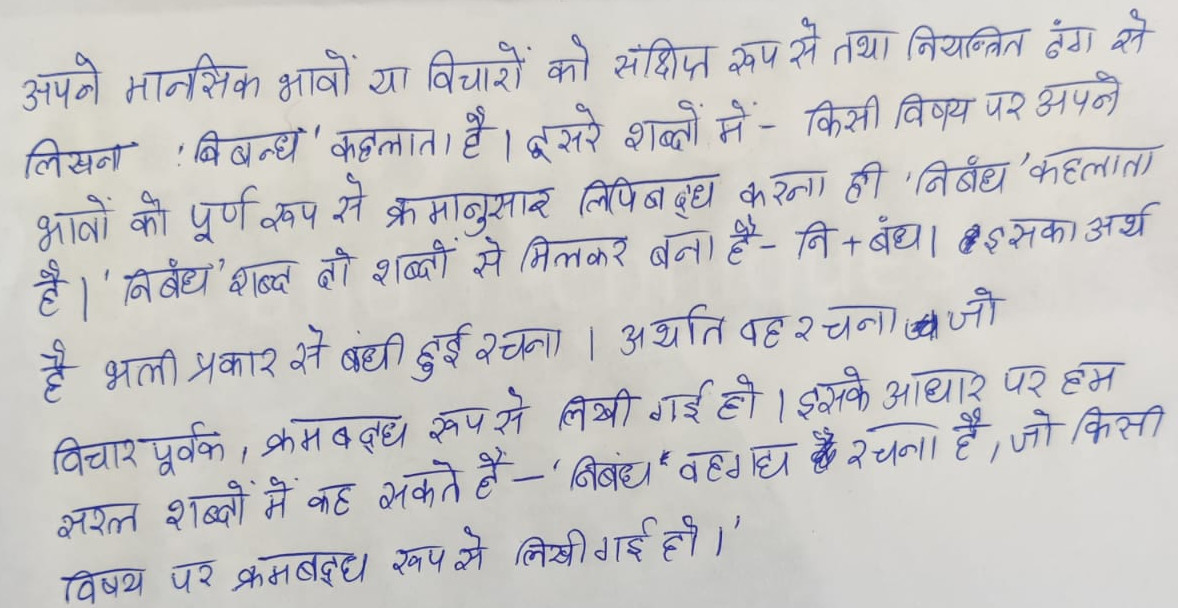 अपने मानसिक भावों या विचारों को संक्षिप्त रूप से तथा नियन्त्रित ढंग से
लिखना 'निबन्ध' कहलाता है। दूसरे शब्दों में - किसी विषय पर अपने
भावों को पूर्ण रूप से क्रमानुसार लिपिबद्ध करना ही 'निबंध' कहलाता
है। 'निबंध' शब्द दो शब्दों से मिलकर बना है - नि + बंध। इसका अर्थ
है भली प्रकार से बंधी हुई रचना। अर्थात वह रचना जो
विचार पूर्वक, क्रमबद्ध रूप से लिखी गई हो। इसके आधार पर हम
सरल शब्दों में कह सकते हैं - 'निबंध' वह गद्य रचना है, जो किसी
विषय पर क्रमबद्ध रूप से लिखी गई हो।'